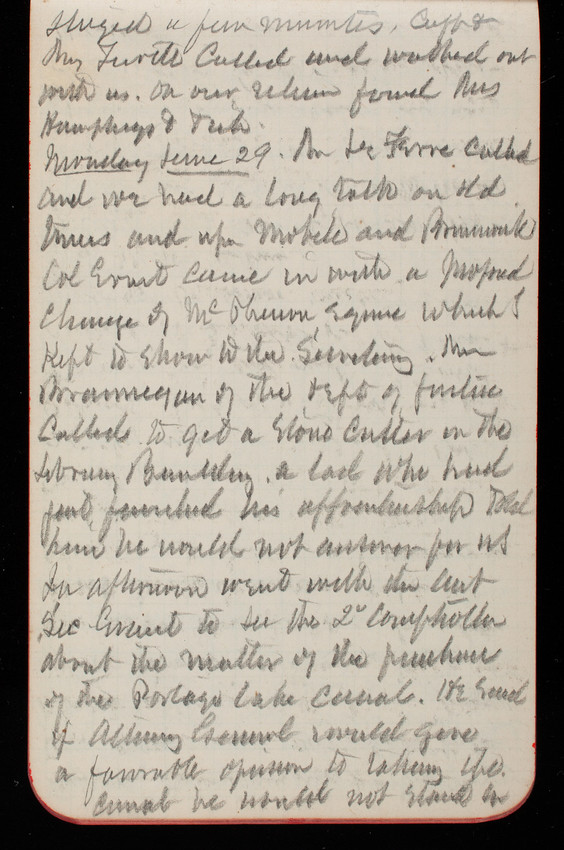 stayed a few minutes. Capt &
Mrs Turtle Called and walked out
with us. On our return found Mrs
Humphreys & Tish.
Monday June 29. Mr Called
and we had a long talk on old
times and upon Mobile and Brunswick
Col Ernst came in with a proposed
change of Mc Pherson Square which I
Kept to show to the Secretary. Mr
Brannegan of the Dept of Justice
Called to get a Stone Cutter in the
Library Building, a lad who had
just finished his apprenticeship Told
him he would not answer for us
In afternoon went with the Asst
Sec Grant to see the 2d Comptroller
about the matter of the purchase
of the Portage Lake Canal. He said
if Attorney General would give
a favorable opinion to taking the
Canal he would not stand in